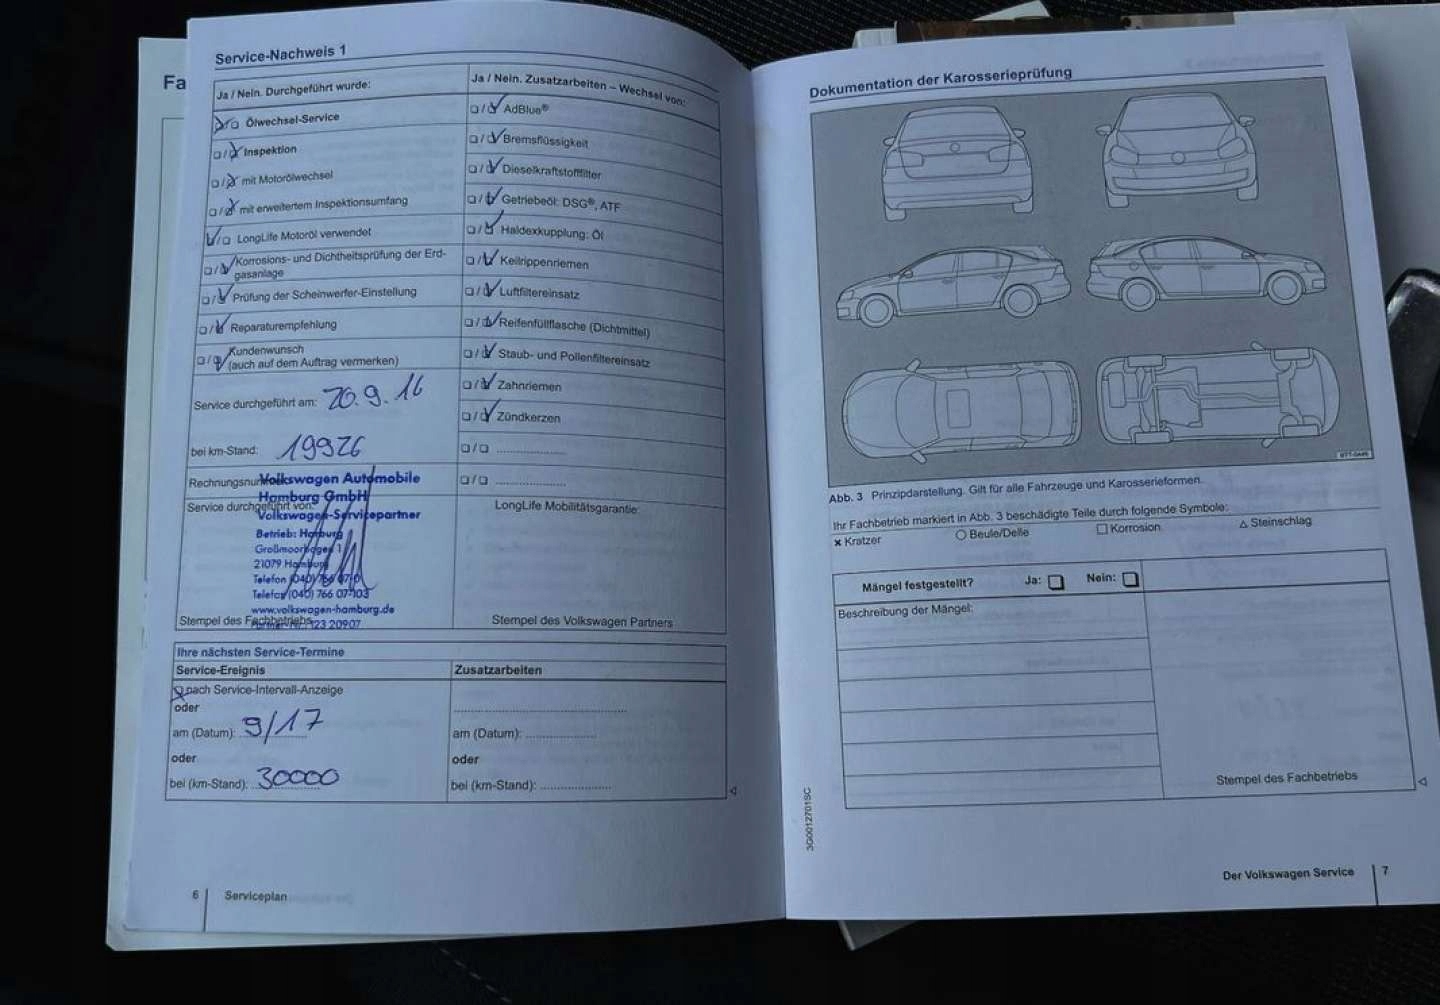 Fa
Service-Nachweis 1
Ja / Nein. Durchgeführt wurde:
Ölwechsel-Service
Inspektion
mit Motorölwechsel
mit erweitertem Inspektionsumfang
LongLife Motoröl verwendet
Korrosions- und Dichtheitsprüfung der Erd-
gasanlage
Prüfung der Scheinwerfer-Einstellung
Reparaturempfehlung
Kundenwunsch
(auch auf dem Auftrag vermerken)
Service durchgeführt am: 20.9.16
bei km-Stand: 19926
Service durchgeführt von:
Volkswagen Automobile
Hamburg GmbH
Volkswagen-Servicepartner
Betrieb: Harburg
21079 Hamburg
Telefon (040) 766 07-0
Telefax (040) 766 07-103
www.volkswagen-hamburg.de
123 20907
Stempel des Fachbetriebs
Ja / Nein. Zusatzarbeiten – Wechsel von:
AdBlue®
Bremsflüssigkeit
Dieselkraftstofffilter
Getriebeöl: DSG®, ATF
Haldexkupplung: Öl
Keilrippenriemen
Luftfiltereinsatz
Reifenfüllflasche (Dichtmittel)
Staub- und Pollenfiltereinsatz
Zahnriemen
Zündkerzen
LongLife Mobilitätsgarantie:
Stempel des Volkswagen Partners
Ihre nächsten Service-Termine
Service-Ereignis
nach Service-Intervall-Anzeige
oder
am (Datum): 9/17
oder
bei (km-Stand): 30000
Zusatzarbeiten
am (Datum):
oder
bei (km-Stand):
6 Serviceplan
Dokumentation der Karosserieprüfung
Abb. 3 Prinzipdarstellung. Gilt für alle Fahrzeuge und Karosserieformen.
Ihr Fachbetrieb markiert in Abb. 3 beschädigte Teile durch folgende Symbole:
× Kratzer ○ Beule/Delle □ Korrosion △ Steinschlag
Mängel festgestellt? Ja: Nein:
Beschreibung der Mängel:
Stempel des Fachbetriebs
3G0012701SC
Der Volkswagen Service 7